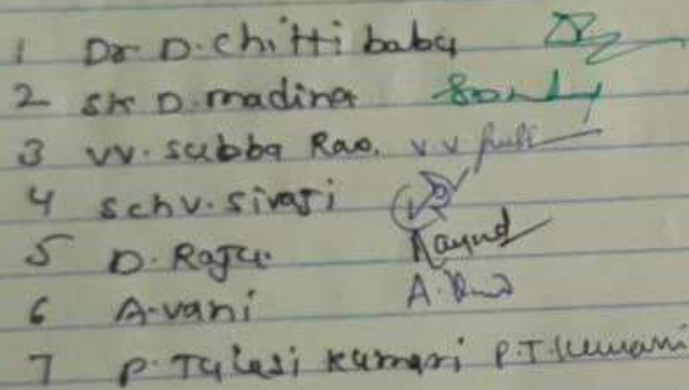 1 Dr D. chitti babu
2 SK D. madina
3 VV. subba Rao.
4 S ch v. sivaji
5 D. Raju
6 A. vani
7 P. Tulasi kumari P.T. Kumari